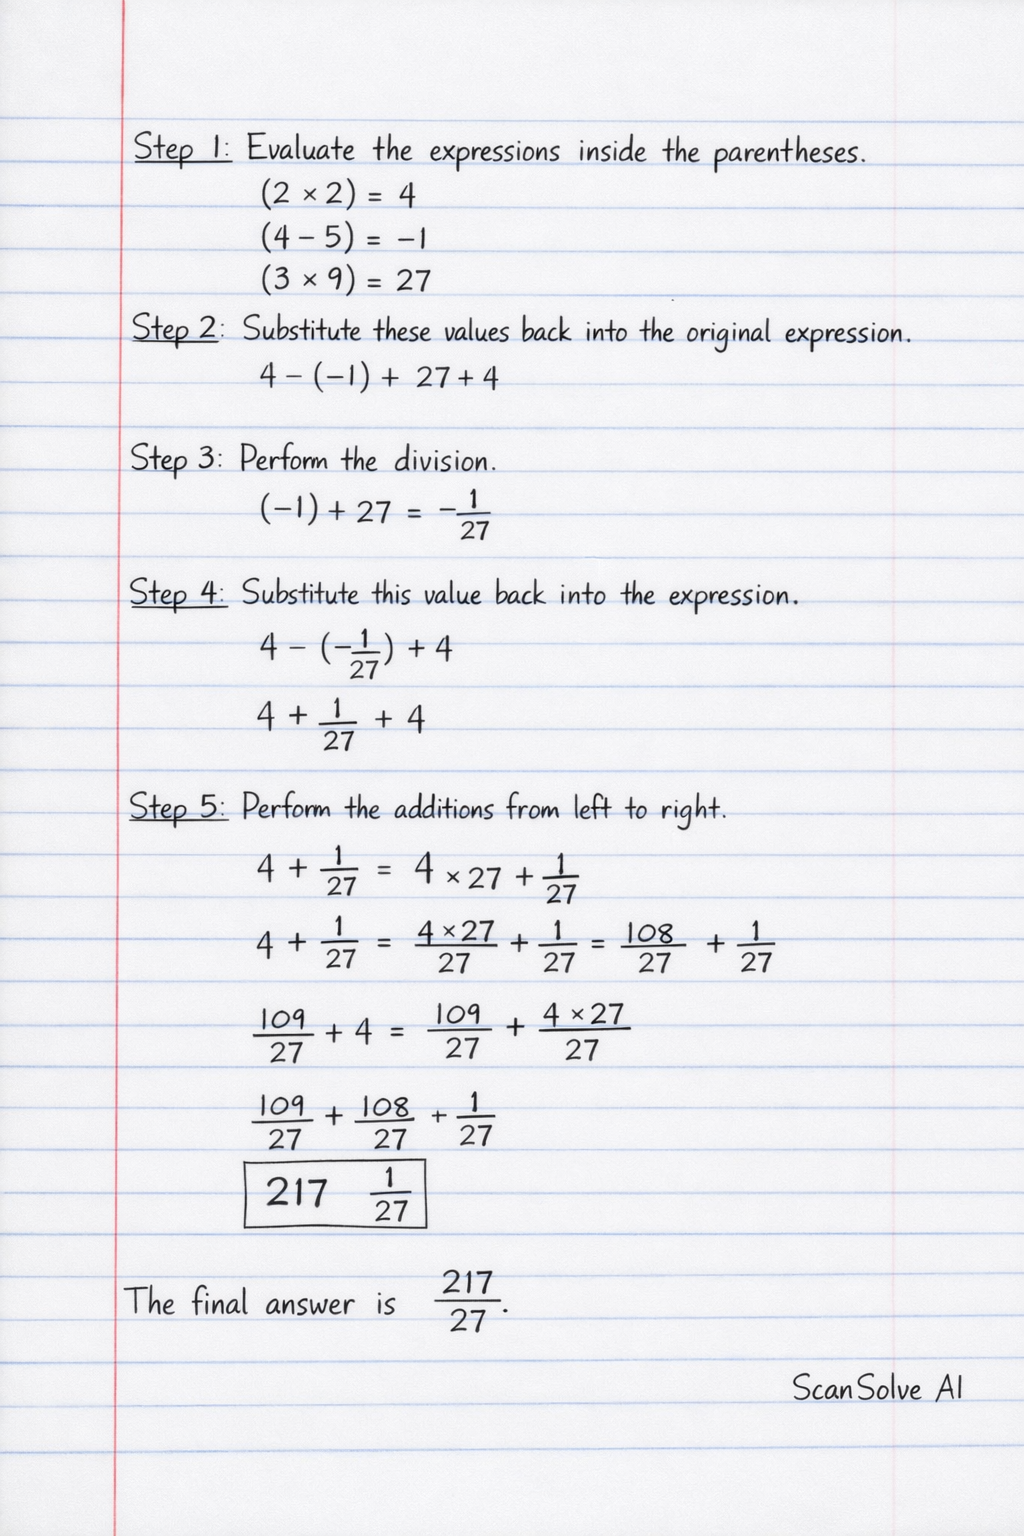 Step 1: Evaluate the expressions inside the parentheses.
(2 × 2) = 4
(4 – 5) = –1
(3 × 9) = 27
Step 2: Substitute these values back into the original expression.
4 – (–1) + 27 + 4
Step 3: Perform the division.
(–1) + 27 = –1/27
Step 4: Substitute this value back into the expression.
4 – (–1/27) + 4
4 + 1/27 + 4
Step 5: Perform the additions from left to right.
4 + 1/27 = 4 × 27 + 1/27
4 + 1/27 = 4 × 27/27 + 1/27 = 108/27 + 1/27
109/27 + 4 = 109/27 + 4 × 27/27
109/27 + 108/27 + 1/27
217 1/27
The final answer is 217/27.
ScanSolve AI